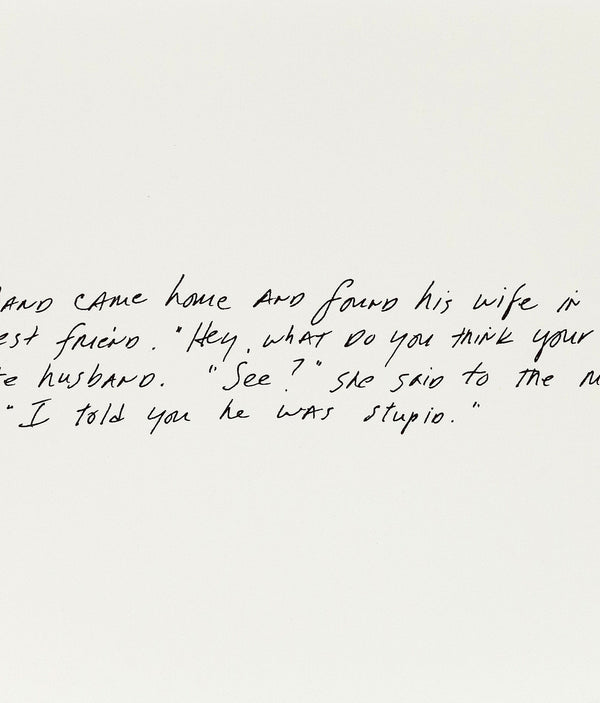 AND CAME home AND found his wife in
est friend. "Hey, what do you think your
te husband. "See?" she said to the
"I told you he was stupid."